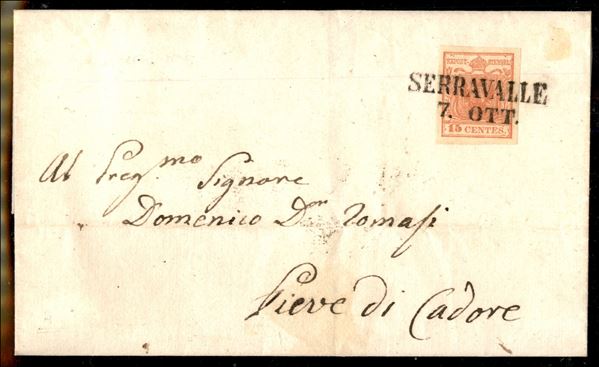 KKPOST-STEMPEL
SERRAVALLE
7. OTT.
15 CENTES.
Al Preg.mo Signore
Domenico Dn Tomasi
Pieve di Cadore